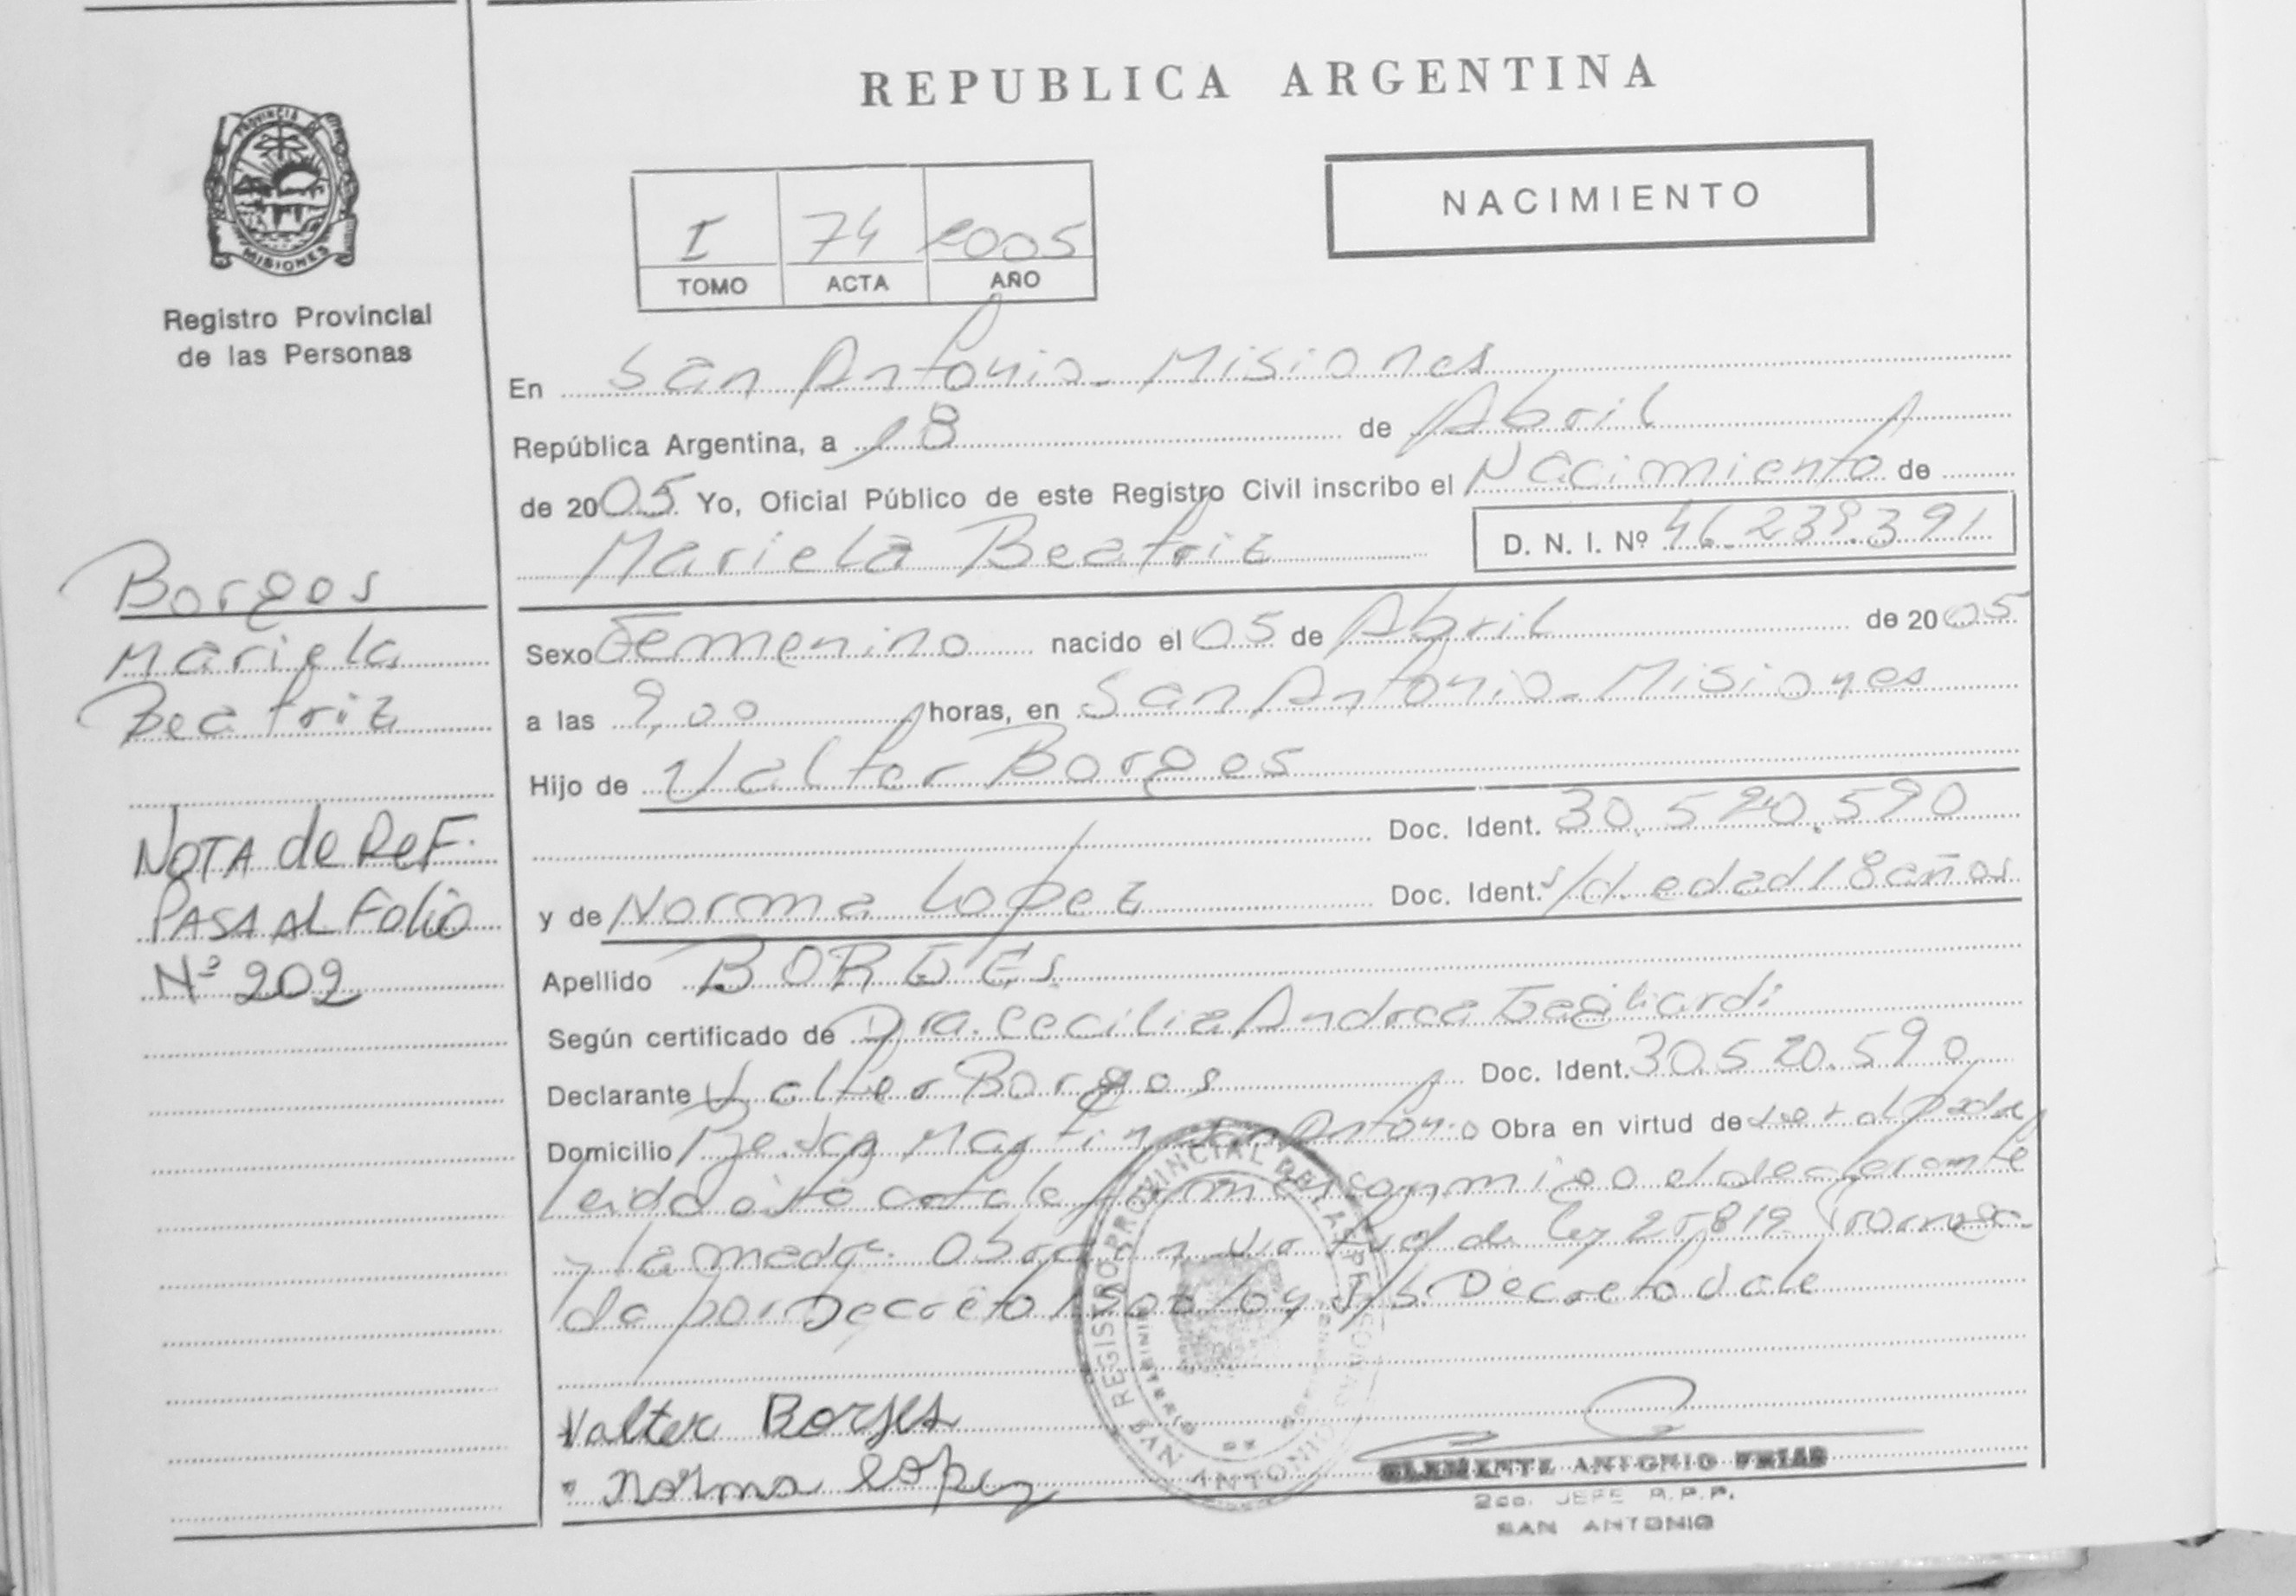 REPUBLICA ARGENTINA
NACIMIENTO
PROVINCIA DE
MISIONES
Registro Provincial
de las Personas
I 74 2005
TOMO ACTA AÑO
En San Antonio - Misiones
República Argentina, a 18 de Abril
de 2005 Yo, Oficial Público de este Registro Civil inscribo el Nacimiento de
Mariela Beatriz D. N. I. Nº 46.239.391
Borges
Mariela
Beatriz
NOTA de ReF.
PASA AL Folio
Nº 202
Sexo Femenino nacido el 05 de Abril de 2005
a las 9,00 horas, en San Antonio - Misiones
Hijo de Valter Borges
Doc. Ident. 30.520.590
y de Norma Lopez Doc. Ident. s/d. edad 18 años
Apellido BORGES
Según certificado de Dra. Cecilia Andrea Tagliardi
Declarante Valter Borges Doc. Ident. 30.520.590
Domicilio San Martin San Antonio Obra en virtud de ser el padre
leida esta acta la firma conmigo el declarante
y la madre. Obra en virtud de ley 25819 Prorroga-
da por Decreto /04 S/b. Decreto Vale
Valter Borges
Norma Lopez
REGISTRO PROVINCIAL DE LAS PERSONAS
SAN ANTONIO
CLEMENTE ANTONIO FRIAS
2do. JEFE R.P.P.
SAN ANTONIO